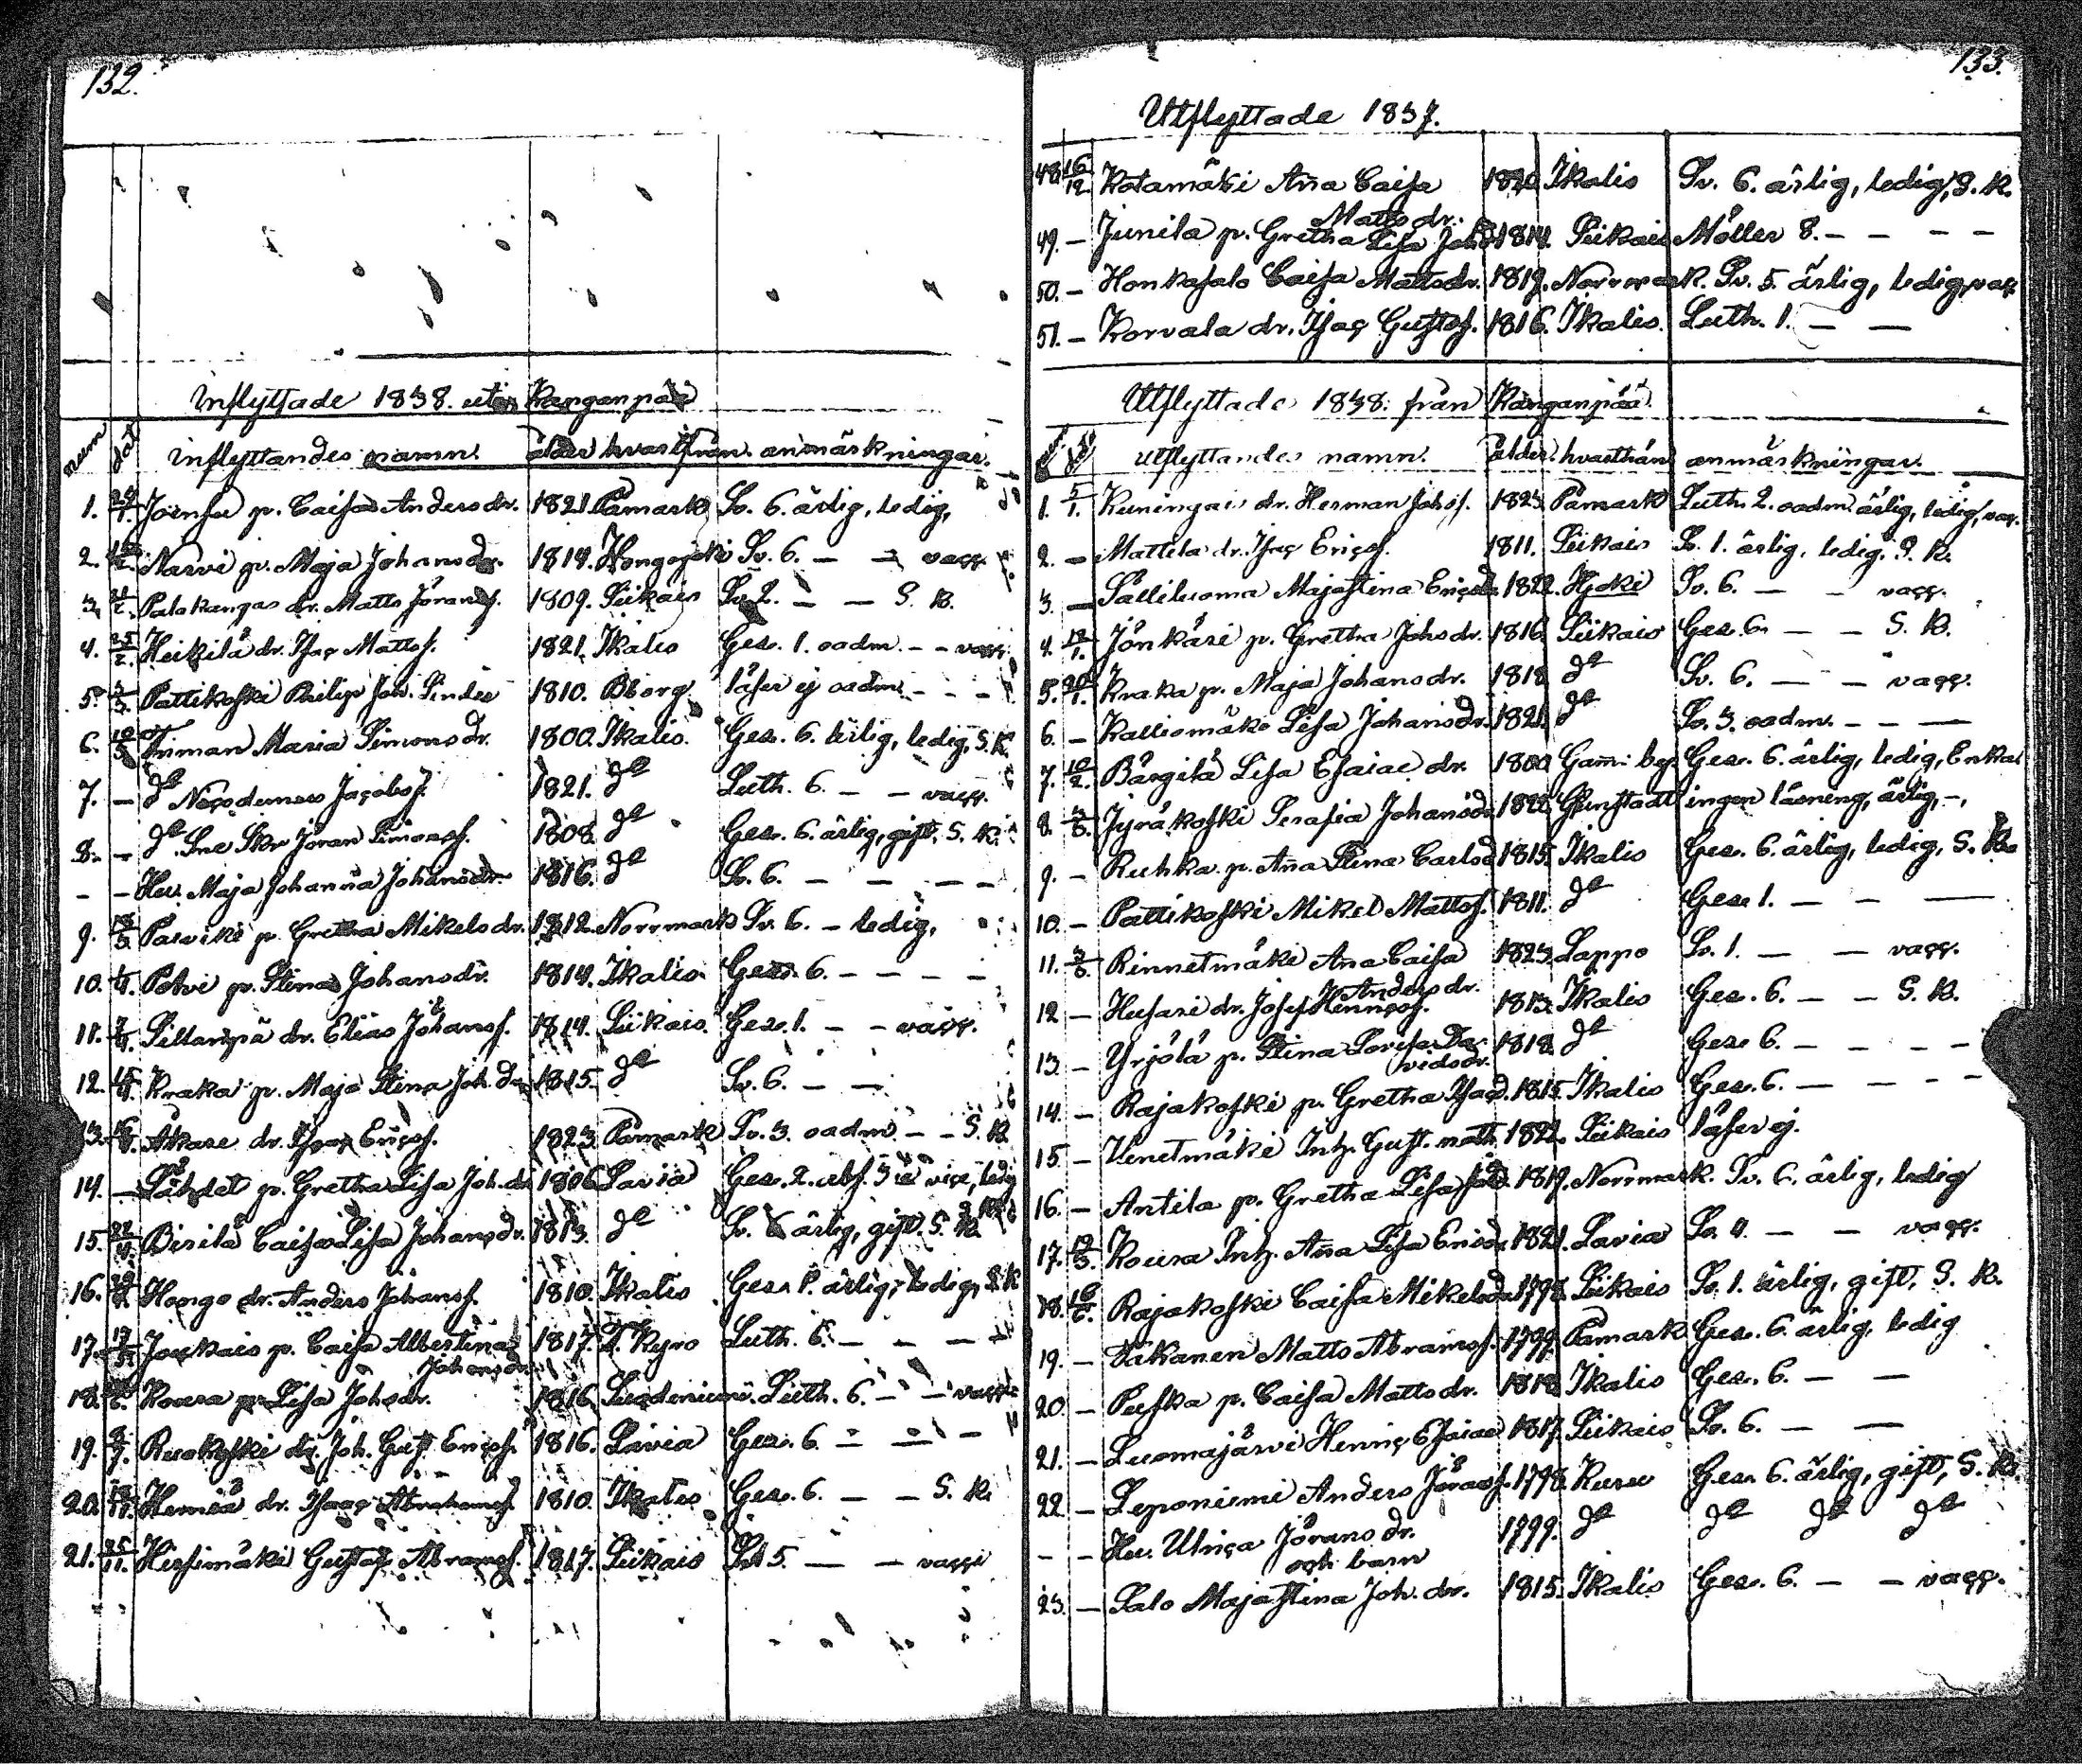 132.
Inflyttade 1838. uti Kanganpää
num dat inflyttandes namn. ålder hvarifrån. anmärkningar.
1. Caisa Andersdr. 1821. Påmark Sv. 6. ärlig, ledig,
2. Narvi p. Maja Johansdr. 1814. Hongojoki Sv. 6. — — vacc.
3. Palokangas dr. Matts Jöransf. 1809. Siikais Sv. 2. — — S. K.
4. 25/2. Heikilä dr. Isac Mattsf. 1821. Ikalis Ges. 1. oadm. — — vacc.
5. Pattikoski Philip Joh. Sinder 1810. Bborg. läser ej oadm. — — —
6. Maria Simonsdr. 1800. Ikalis. Ges. 6. ärlig, ledig, S. K.
7. — do Jacobsf. 1821. do Luth. 6. — — vacc.
8. — do Jöran Simonsf. 1808. do Ges. 6. ärlig, gift, S. K.
- — Hu. Maja Johanna Johansdr. 1816. do Sv. 6. — — — —
9. Gretha Mikelsdr. 1812. Norrmark Sv. 6. — ledig,
10. Stina Johansdr. 1814. Ikalis Ges. 6. — — — —
11. Sillanpä dr. Elias Johansf. 1814. Siikais. Ges. 1. — — vacc.
12. Kraka p. Maja Stina Joh. dr. 1815. do Sv. 6. — —
13. dr. Isac Ericsf. 1823. Påmark Sv. 3. oadm. — — S. K.
14. — Gretha Lisa Joh. dr. 1806. Lavia Ges. 2. ledig
15. Caisa Lisa Johansdr. 1813. do Sv. 6 ärlig, gift. S. K.
16. Hongo dr. Anders Johansf. 1810. Ikalis Ges. 1. ärlig, ledig, S. K
17. Joukais p. Caisa Albertina 1817. T. Kyro Luth. 6. — — — —
Johansdr.
18. Koura p. Lisa Johsdr. 1816. Luth. 6. — — vacc.
19. Ruokoski dr. Joh. Gust. Ericsf. 1816. Lavia Ges. 6. — — —
20. dr. Isaac Abrahamsf. 1810. Ikalis Ges. 6. — — S. K.
21. 25/11. Hirsimäki Gustaf Abramsf. 1817. Siikais Sv. 5. — — vacc.
133.
Utflyttade 1837.
48. 16/12 Kotamäki Aña Caisa 1820. Ikalis Sv. 6. ärlig, ledig, S. K.
Mattsdr.
49. — Junila p. Gretha Lisa Johsd. 1814. Siikais Möller 8. — — — —
50. — Honkasalo Caisa Mattsdr. 1819. Norrmark. Sv. 5. ärlig, ledig, vacc
51. — Korvala dr. Isac Gustafsf. 1816. Ikalis. Luth. 1. — —
Utflyttade 1838. från Kanganpää
utflyttandes namn. ålder. hvarthän anmärkningar.
1. 5/1. Kuningais dr. Herman Johsf. 1823. Påmark Luth. 2. oadm. ärlig, ledig, vac.
2. — Mattila dr. Isac Ericsf. 1811. Siikais Sv. 1. ärlig, ledig. S. K.
3. — Sälliluoma Majastina Ericsdr. 1822. Hjoki Sv. 6. — — vacc.
4. 12/1. Jönkäri p. Gretha Johsdr. 1816. Siikais Ges. 6. — — S. K.
5. 20/1. Kraka p. Maja Johansdr. 1818. do Sv. 6. — — vacc.
6. — Kalliomäki Lisa Johansdr. 1821. do Sv. 3. oadm. — — —
7. 10/2. Bärgilä Lisa Esaiae dr. 1800. Gam: by. Ges. 6. ärlig, ledig, Enka
8. Jyräkoski Serafia Johansdr. 1822. ingen läsning, ärlig, —,
9. — Ruhka p. Aña Stina Carlsd. 1815. Ikalis Ges. 6. ärlig, ledig, S. K.
10. — Pattikoski Mikel Mattsf. 1811. do Ges. 1. — — —
11. Rinnetmäki Aña Caisa 1823. Lappo Sv. 1. — — vacc.
Andersdr.
12 — Husari dr. Josef Henricsf. 1813. Ikalis Ges. 6. — — S. K.
13. — Yrjölä p. Stina Lovisa Da- 1818. do Ges. 6. — — — —
vidsdr.
14. — Rajakoski p. Gretha Isacd. 1815. Ikalis Ges. 6. — — — —
15. — Venetmäki Inh. Gust. Matt. 1822. Siikais läser ej.
16. — Antila p. Gretha Lisa Johsd. 1819. Norrmark. Sv. 6. ärlig, ledig
17. Koura Inh. Aña Lisa Ericsdr. 1821. Lavia Sv. 4. — — vacc.
18. Rajakoski Caisa Mikelsdr. 1798. Siikais Sv. 1. ärlig, gift, S. K.
19. — Matts Abramsf. 1799. Påmark Ges. 6. ärlig, ledig
20. — Puska p. Caisa Mattsdr. 1818. Ikalis Ges. 6. — —
21. — Luomajärvi Henric Esaiae 1817. Siikais Sv. 6. — —
22. — Leponiemi Anders Jöransf. 1798. Kuru Ges. 6. ärlig, gift, S. K.
- — Hu. Ulrica Jöransdr. 1799. do do do do
och barn
23. — Salo Majastina Joh. dr. 1815. Ikalis Ges. 6. — — vacc.